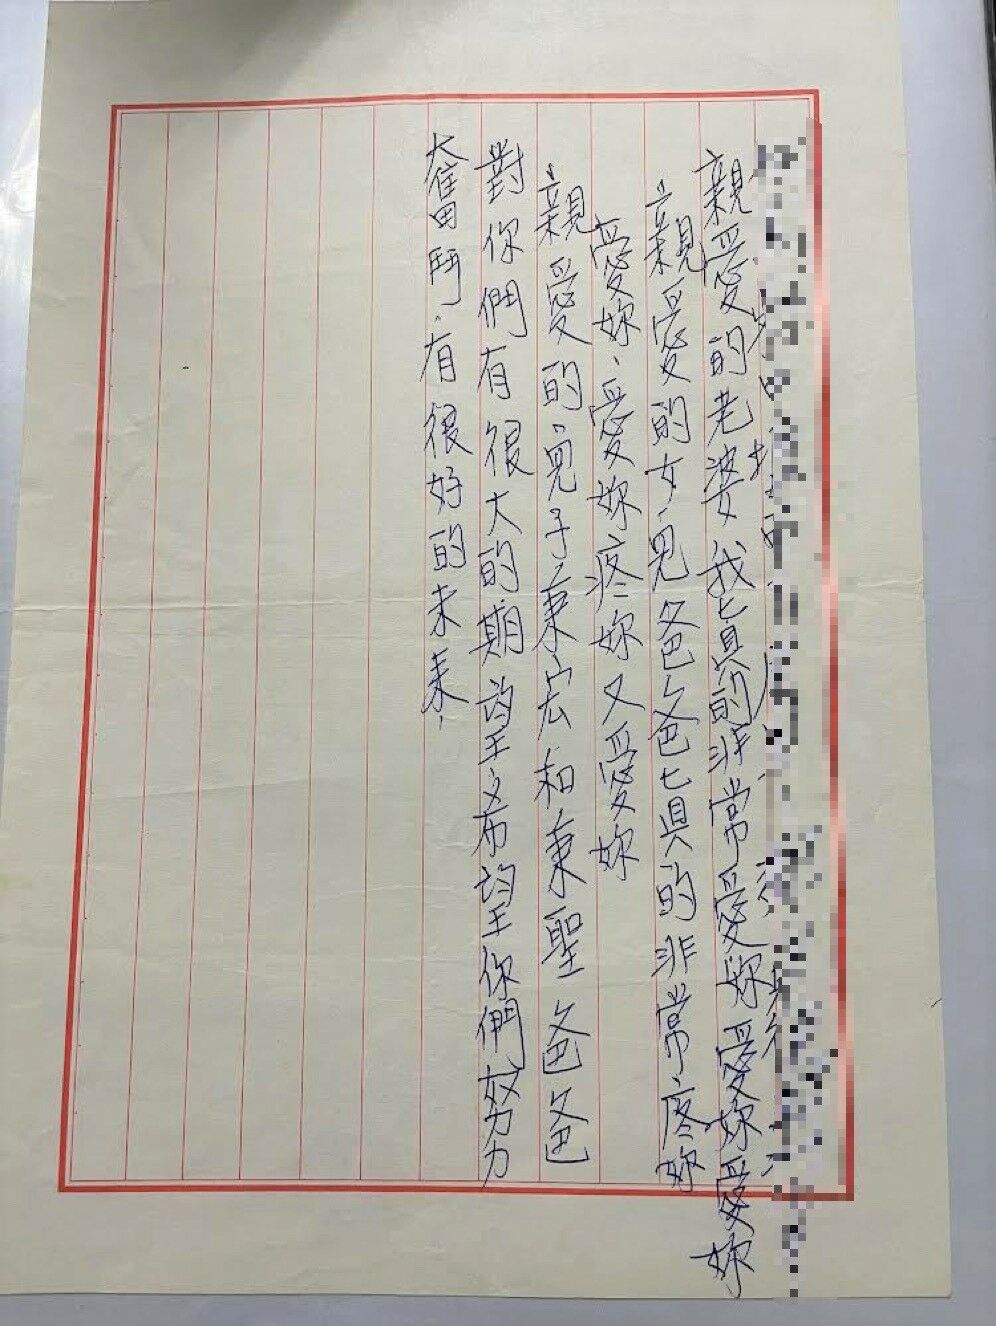 親愛的老婆我真的非常愛妳愛妳愛妳
親愛的女兒爸爸真的非常疼妳
愛妳愛妳疼妳又愛妳
親愛的兒子秉宏和秉聖爸爸
對你們有很大的期望希望你們努力
奮鬥有很好的未來